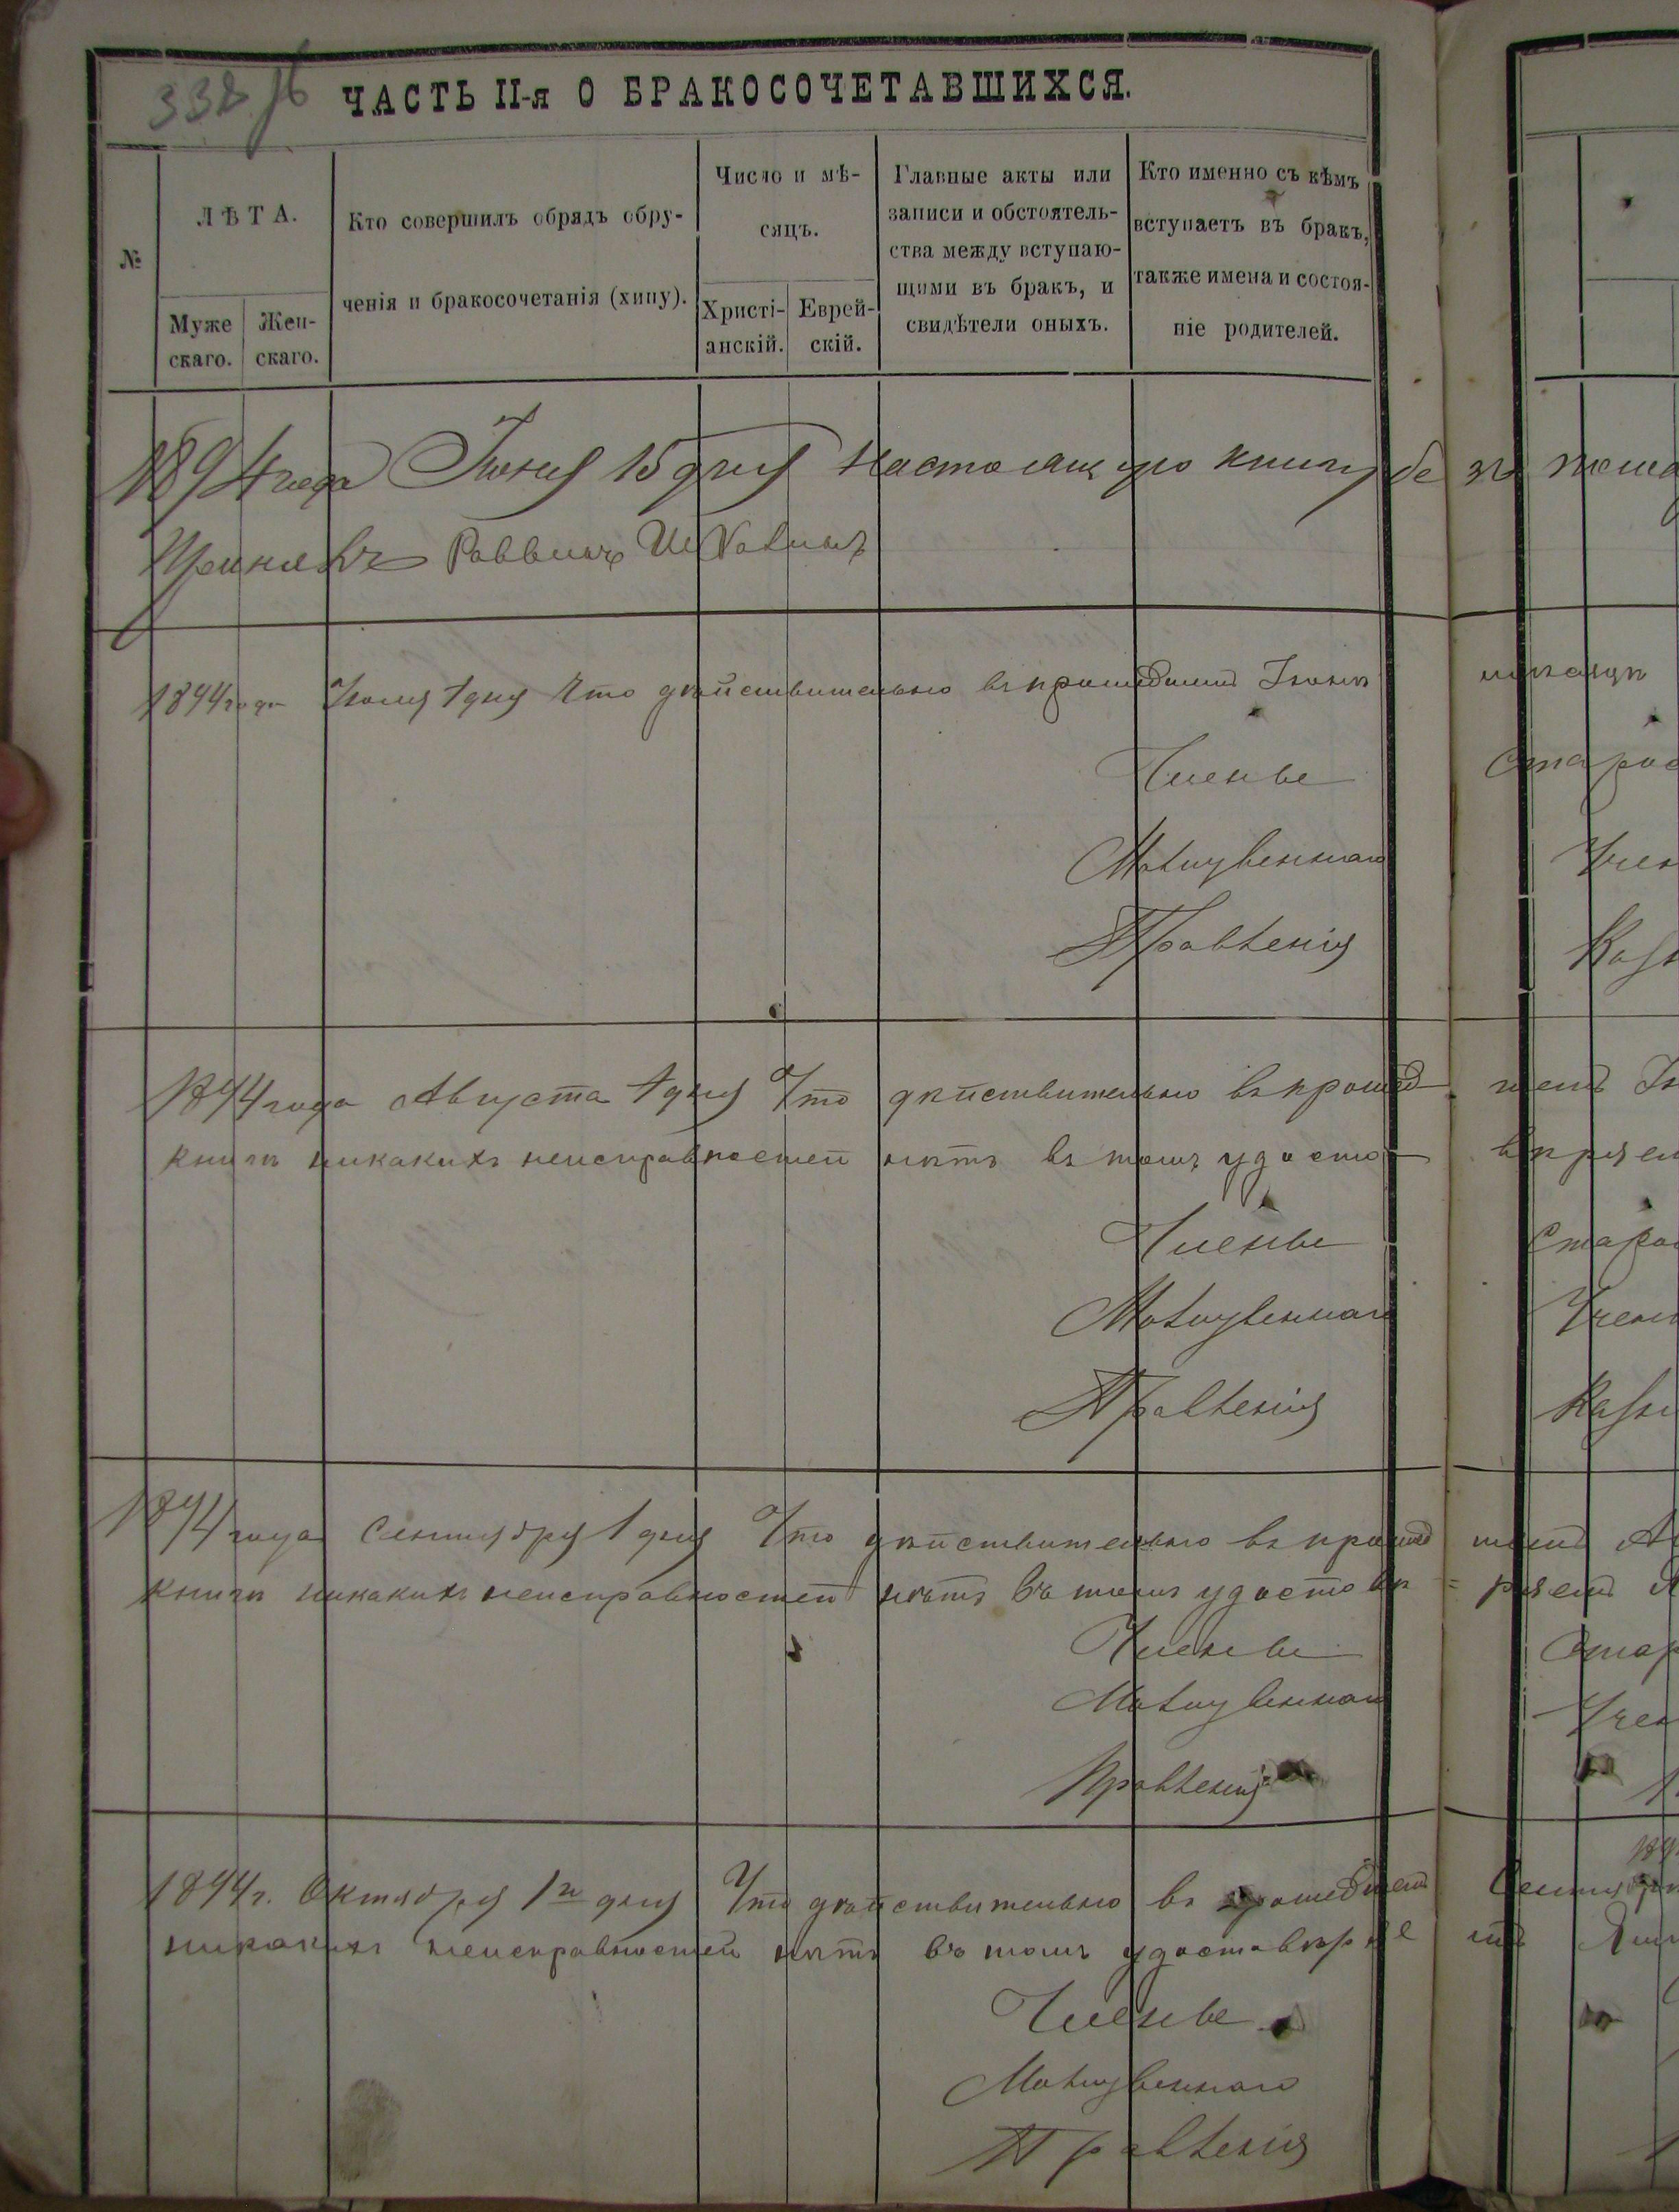 338 об
ЧАСТЬ II-я О БРАКОСОЧЕТАВШИХСЯ.
№
ЛѢТА.
Муже
скаго.
Жен-
скаго.
Кто совершилъ обрядъ обру-
ченія и бракосочетанія (хипу).
Число и мѣ-
сяцъ.
Христі-
анскій.
Еврей-
скій.
Главные акты или
записи и обстоятель-
ства между вступаю-
щими въ бракъ, и
свидѣтели оныхъ.
Кто именно съ кѣмъ
вступаетъ въ бракъ,
также имена и состоя-
ніе родителей.
1894 года Іюня 15 дня Настоящую книгу
Принялъ Раввинъ
1894 года Іюля 1 дня Что дѣйствительно въ прошедшемъ Іюнѣ мѣсяцѣ
Члены Старос
Молитвеннаго Учен
Правленія Казн
1894 года Августа 1 дня Что дѣйствительно въ прошед шемъ
книгѣ никакихъ неисправностей нѣтъ въ томъ удосто
Члены Старо
Молитвеннаго Учен
Правленія Казн
1894 года Сентября 1 дня Что дѣйствительно въ прошед шемъ
книгѣ никакихъ неисправностей нѣтъ въ томъ удостовѣ = ряемъ
Члены Стар
Молитвеннаго Учен
Правленія
1894 г. Октября 1 дня Что дѣйствительно въ прошедшемъ Сентябрѣ
никакихъ неисправностей нѣтъ въ томъ удостовѣряе мъ
Члены
Молитвеннаго
Правленія